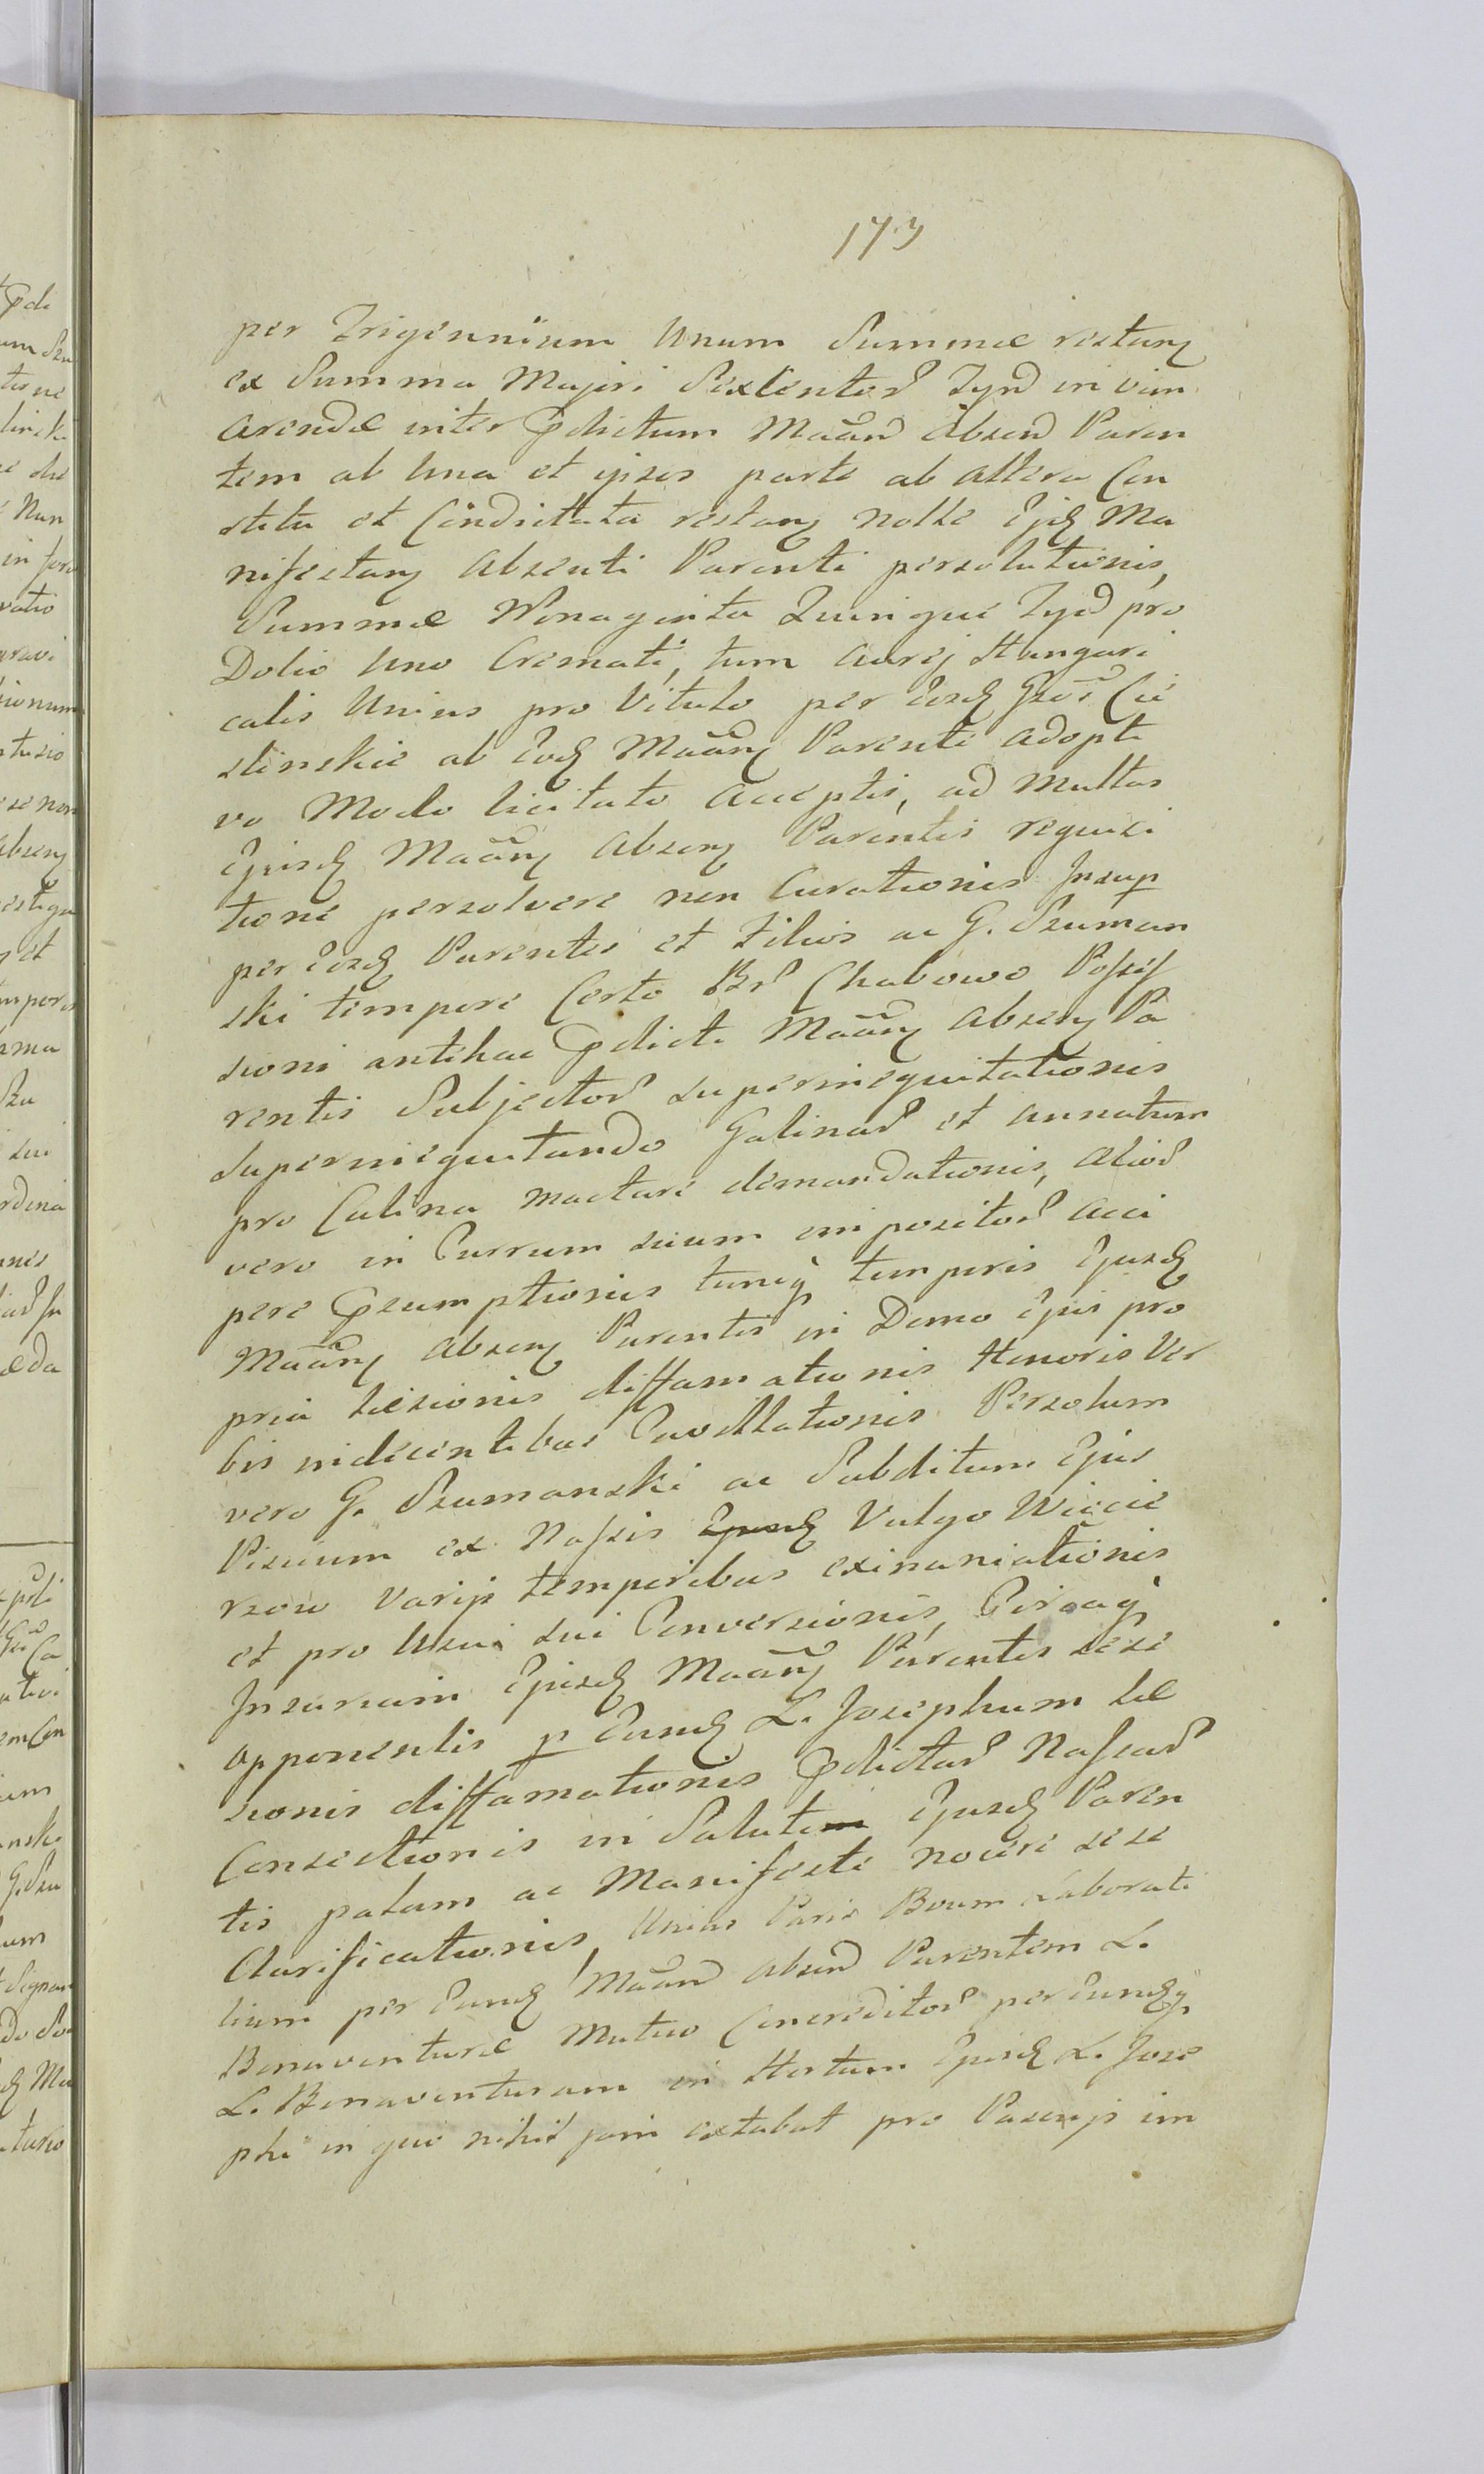 173
per Trigennium Unum Summæ restan
ex Summa Majori Sexcentor Tynf in vim
arendæ inter Pdictum Maan Absen Paren
tem ab Una et ipsos parte ab altera Con
stitu et Condictata restan nolle Ejd Ma
nifestan Absenti Parenti persolutionis,
Summæ Nonaginta Quinque Tynf pro
Dolio Uno Cremati, tum aurej Hungari
calis Unius pro Vitulo per Eosd Gsos Cie
slinskie ab Eod Maan Parente adopti
vo Modo licitato acceptis, ad multas
Ejusd Maan Absen Parentis requisi
tione persolvere non Curationis Insup
per Eosd Parentes et Filios ac G. Szuman
ski tempore Certo Bs Chabowo Posses
sioni antehac Pdicti Maan Absen Pa
rentis Subjector superinequitationis
Superinequitando Galinar et annatum
pro Culina mactare demandationis, alior
vero in Currum suum impositor acci
pere Psumptionis tuncq temporis Ejusd
Maan Absen Parentis in Domo Ejus pro
pria Læsionis diffamationis Honoris Ver
bis indecentibus Provllationis Persolum
vero G. Szumanski ac Subditum Ejus
Piscium ex Nassis Ejusd Vulgo Wiecie
rzow Varijs temporibus exinaniationis
et pro Usui sui Conversionis, Circaq
Insaniam Ejusd Maan Parentis sese
opponentis p Eund L. Josephum læ
sionis diffamationis Pdictar Nassar
Consectionis in Salute Ejusd Paren
tis palam ac Manifeste nocere sese
Clarificationis, Unius Paris Boum Laborati
lium per Eund Maan Absen Parentem L.
Bonaventuræ Mutuo Concreditor per Eundq
L. Bonaventuram in Hortum Ejusd L. Jose
phi in quo nihil jam extabat pro Pascujs im